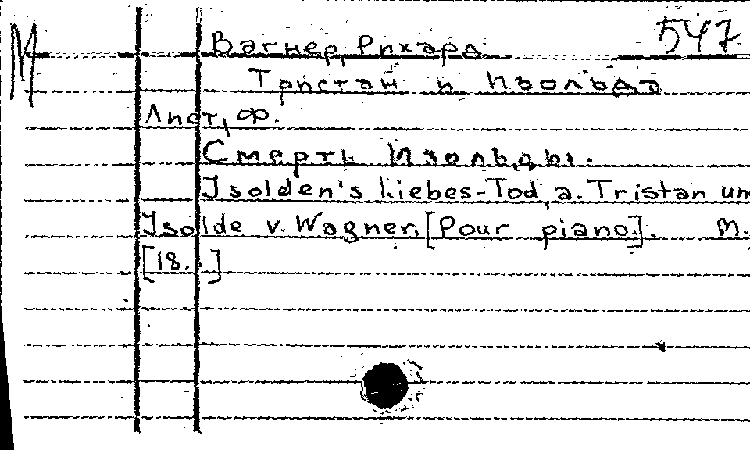 М Вагнер, Рихард 547
Тристан и Изольда
Лист, Ф.
Смерть Изольды.
Isolden's Liebes-Tod a. Tristan un
Isolde v. Wagner. [Pour piano]. M.
[18..]